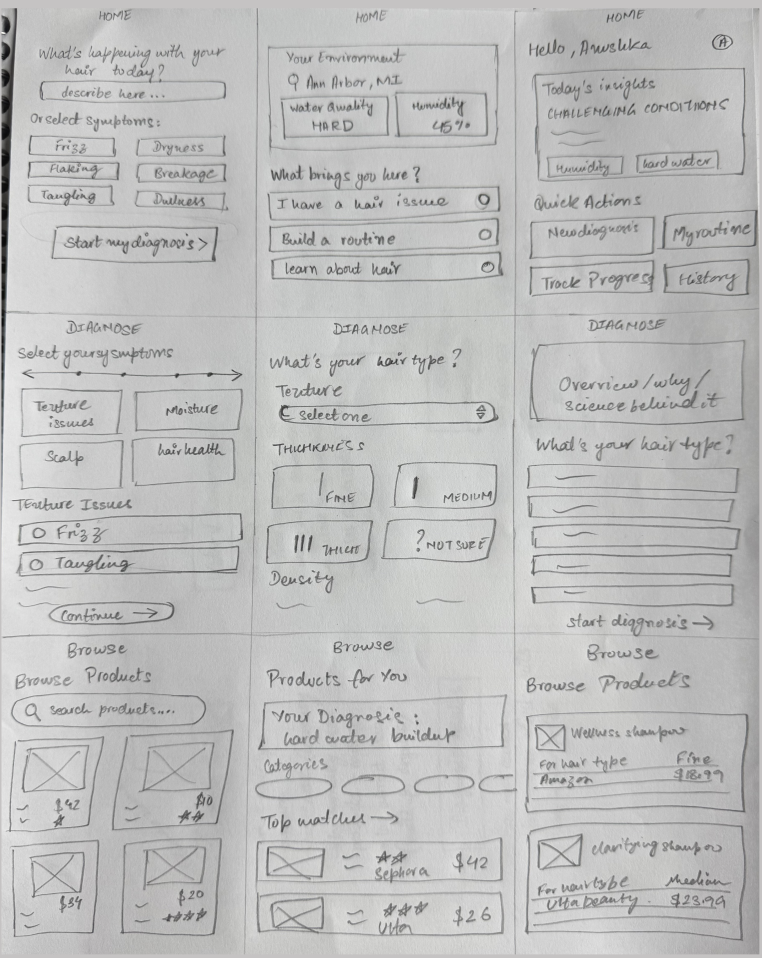 HOME
What's happening with your
hair today?
describe here ...
Or select symptoms:
Frizz
Dryness
Flaking
Breakage
Tangling
Dullness
Start my diagnosis >
HOME
Your Environment
Ann Arbor, MI
Water Quality
HARD
Humidity
45%
What brings you here?
I have a hair issue
Build a routine
learn about hair
HOME
Hello, Anushka
A
Today's insights
CHALLENGING CONDITIONS
Humidity
hard water
Quick Actions
New diagnosis
My routine
Track Progress
History
DIAGNOSE
Select your symptoms
Texture
issues
Moisture
Scalp
hair health
Texture Issues
Frizz
Tangling
Continue →
DIAGNOSE
What's your hair type?
Texture
Select one
THICKNESS
FINE
MEDIUM
THICK
? NOT SURE
Density
DIAGNOSE
Overview/why/
science behind it
What's your hair type?
start diagnosis →
Browse
Browse Products
search products....
$42
$10
$34
$20
Browse
Products for You
Your Diagnosis:
hard water buildup
Categories
Top matches →
Sephora
$42
Ulta
$26
Browse
Browse Products
Wellness shampoo
For hair type Fine
Amazon $18.99
clarifying shampoo
For hair type Medium
Ulta beauty. $23.99